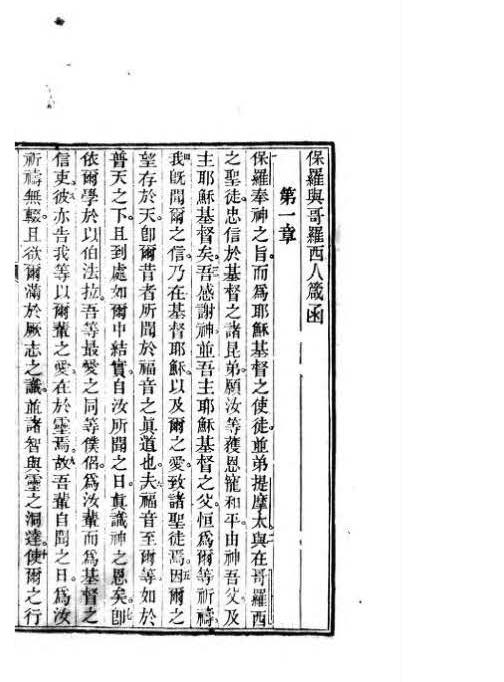 保羅與哥羅西人箴函
第一章
保羅奉神之旨。而為耶穌基督之使徒。並弟提摩太。與在哥羅西
之聖徒。忠信於基督之諸昆弟。願汝等獲恩寵和平。由神吾父。及
主耶穌基督矣。吾感謝神。並吾主耶穌基督之父。恒為爾等祈禱。
我既聞爾之信。乃在基督耶穌。以及爾之愛。致諸聖徒焉。因爾之
望存於天。即爾昔者所聞於福音之眞道也。夫福音至爾等。如於
普天之下。且到處如爾中結實。自汝所聞之日。眞識神之恩矣。即
依爾學於以伯法拉。吾等最愛之同等僕侶。為汝輩而為基督之
信吏。彼亦告我等以爾輩之愛。在於靈焉。故吾輩自聞之日。為汝
祈禱無輟。且欲爾滿於厥志之識。並諸智與靈之洞達。使爾之行